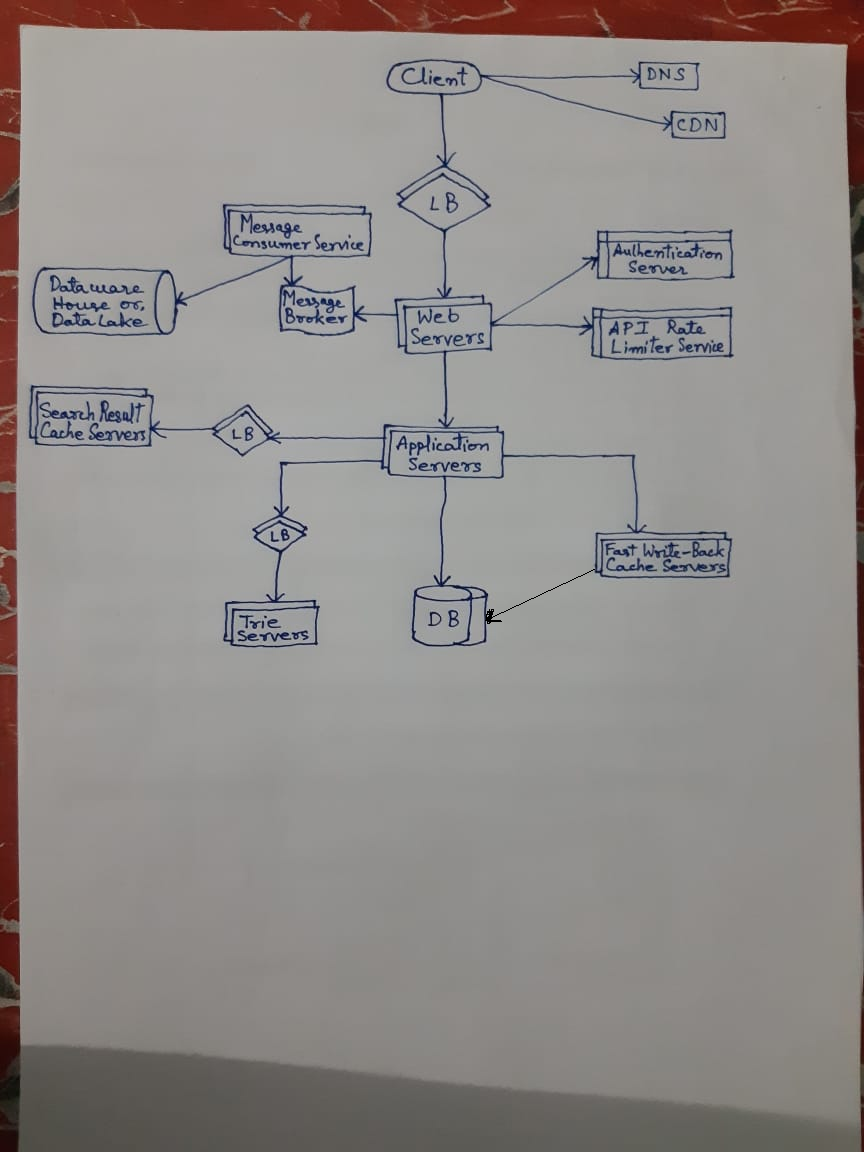 Client
DNS
CDN
LB
Message
Consumer Service
Authentication
Server
Dataware
House or,
Data Lake
Message
Broker
Web
Servers
API Rate
Limiter Service
Search Result
Cache Servers
LB
Application
Servers
LB
Fast Write-Back
Cache Servers
Trie
Servers
DB